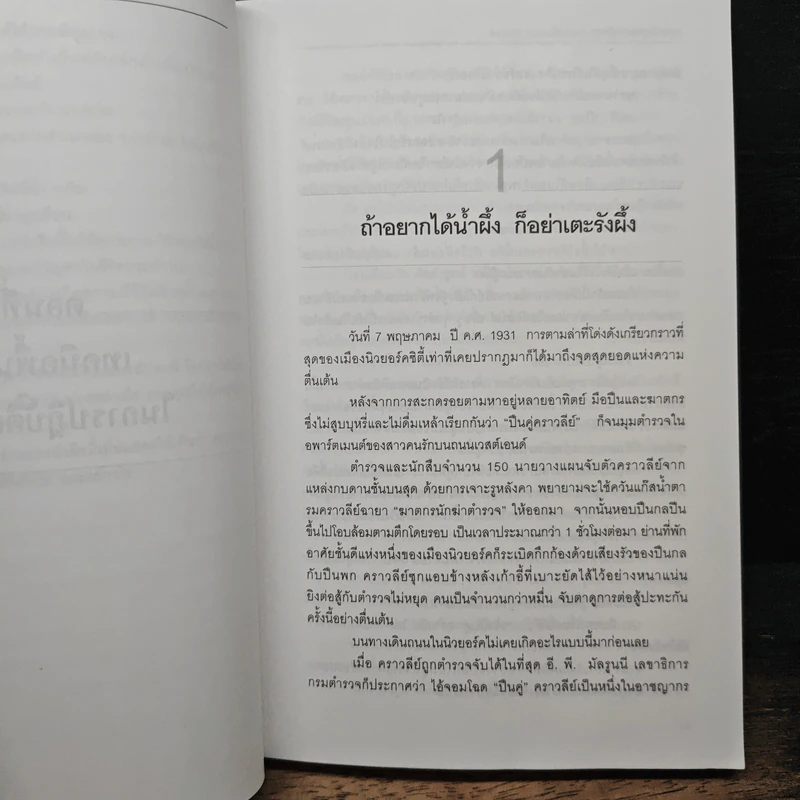 1
ถ้าอยากได้น้ำผึ้ง ก็อย่าเตะรังผึ้ง
วันที่ 7 พฤษภาคม ปี ค.ศ. 1931 การตามล่าที่โด่งดังเกรียวกราวที่
สุดของเมืองนิวยอร์คซิตี้เท่าที่เคยปรากฏมาก็ได้มาถึงจุดสุดยอดแห่งความ
ตื่นเต้น
หลังจากการสะกดรอยตามหาอยู่หลายอาทิตย์ มือปืนและฆาตกร
ซึ่งไม่สูบบุหรี่และไม่ดื่มเหล้าเรียกกันว่า "ปืนคู่คราวลีย์" ก็จนมุมตำรวจใน
อพาร์ตเมนต์ของสาวคนรักบนถนนเวสต์เอนด์
ตำรวจและนักสืบจำนวน 150 นายวางแผนจับตัวคราวลีย์จาก
แหล่งกบดานชั้นบนสุด ด้วยการเจาะรูหลังคา พยายามจะใช้ควันแก๊สน้ำตา
รมคราวลีย์ฉายา "ฆาตกรนักฆ่าตำรวจ" ให้ออกมา จากนั้นหอบปืนกลปืน
ขึ้นไปโอบล้อมตามตึกโดยรอบ เป็นเวลาประมาณกว่า 1 ชั่วโมงต่อมา ย่านที่พัก
อาศัยชั้นดีแห่งหนึ่งของเมืองนิวยอร์คก็ระเบิดกึกก้องด้วยเสียงรัวของปืนกล
กับปืนพก คราวลีย์ซุกแอบข้างหลังเก้าอี้ที่เบาะยัดไส้ไว้อย่างหนาแน่น
ยิงต่อสู้กับตำรวจไม่หยุด คนเป็นจำนวนกว่าหมื่น จับตาดูการต่อสู้ปะทะกัน
ครั้งนี้อย่างตื่นเต้น
บนทางเดินถนนในนิวยอร์คไม่เคยเกิดอะไรแบบนี้มาก่อนเลย
เมื่อ คราวลีย์ถูกตำรวจจับได้ในที่สุด อี. พี. มัลรูนนี เลขาธิการ
กรมตำรวจก็ประกาศว่า ไอ้จอมโฉด "ปืนคู่" คราวลีย์เป็นหนึ่งในอาชญากร